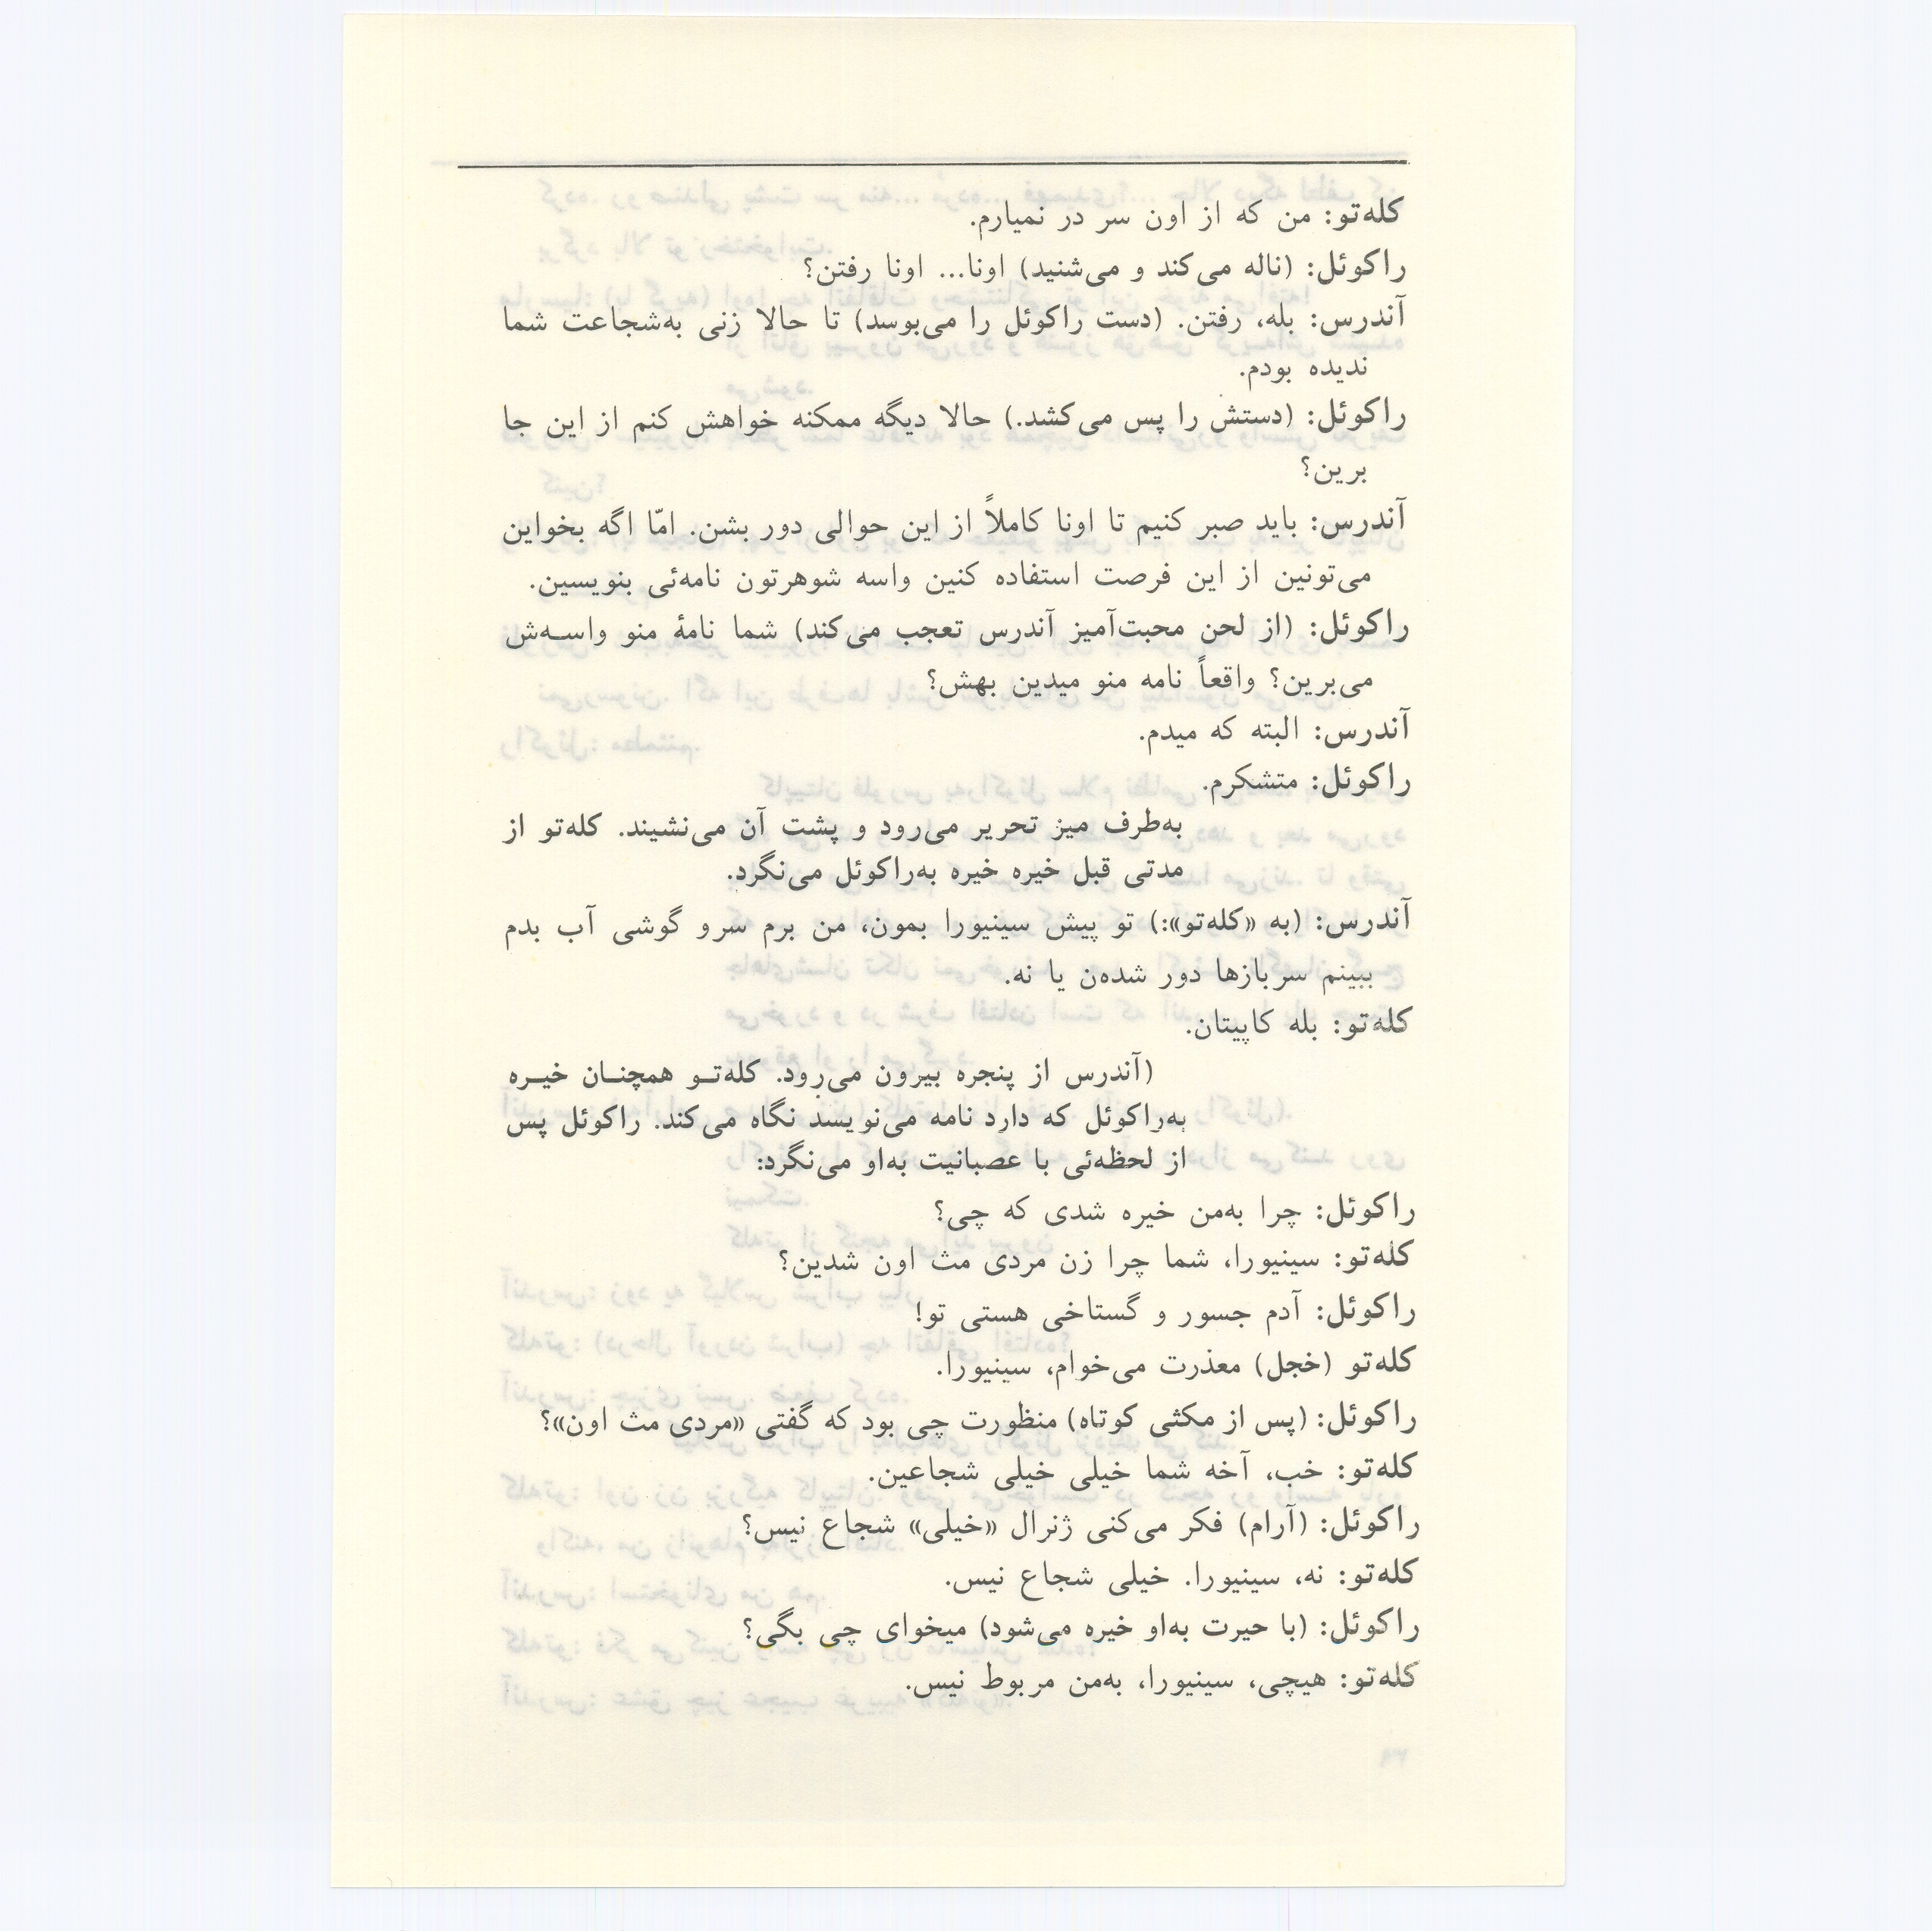 کله‌تو: من که از اون سر در نمیارم.
راکوئل: (ناله می‌کند و می‌شنید) اونا... اونا رفتن؟
آندرس: بله، رفتن. (دست راکوئل را می‌بوسد) تا حالا زنی به‌شجاعت شما
ندیده بودم.
راکوئل: (دستش را پس می‌کشد.) حالا دیگه ممکنه خواهش کنم از این جا
برین؟
آندرس: باید صبر کنیم تا اونا کاملاً از این حوالی دور بشن. امّا اگه بخواین
می‌تونین از این فرصت استفاده کنین واسه شوهرتون نامه‌ئی بنویسین.
راکوئل: (از لحن محبت‌آمیز آندرس تعجب می‌کند) شما نامهٔ منو واســه‌ش
می‌برین؟ واقعاً نامه منو میدین بهش؟
آندرس: البته که میدم.
راکوئل: متشکرم.
به‌طرف میز تحریر می‌رود و پشت آن می‌نشیند. کله‌تو از
مدتی قبل خیره خیره به‌راکوئل می‌نگرد.
آندرس: (به «کله‌تو»:) تو پیش سینیورا بمون، من برم سرو گوشی آب بدم
ببینم سربازها دور شده‌ن یا نه.
کله‌تو: بله کاپیتان.
(آندرس از پنجره بیرون می‌رود. کله‌تــو همچنــان خیــره
به‌راکوئل که دارد نامه می‌نویسد نگاه می‌کند. راکوئل پس
از لحظه‌ئی با عصبانیت به‌او می‌نگرد:
راکوئل: چرا به‌من خیره شدی که چی؟
کله‌تو: سینیورا، شما چرا زن مردی مث اون شدین؟
راکوئل: آدم جسور و گستاخی هستی تو!
کله‌تو (خجل) معذرت می‌خوام، سینیورا.
راکوئل: (پس از مکثی کوتاه) منظورت چی بود که گفتی «مردی مث اون»؟
کله‌تو: خب، آخه شما خیلی خیلی شجاعین.
راکوئل: (آرام) فکر می‌کنی ژنرال «خیلی» شجاع نیس؟
کله‌تو: نه، سینیورا. خیلی شجاع نیس.
راکوئل: (با حیرت به‌او خیره می‌شود) میخوای چی بگی؟
کله‌تو: هیچی، سینیورا، به‌من مربوط نیس.